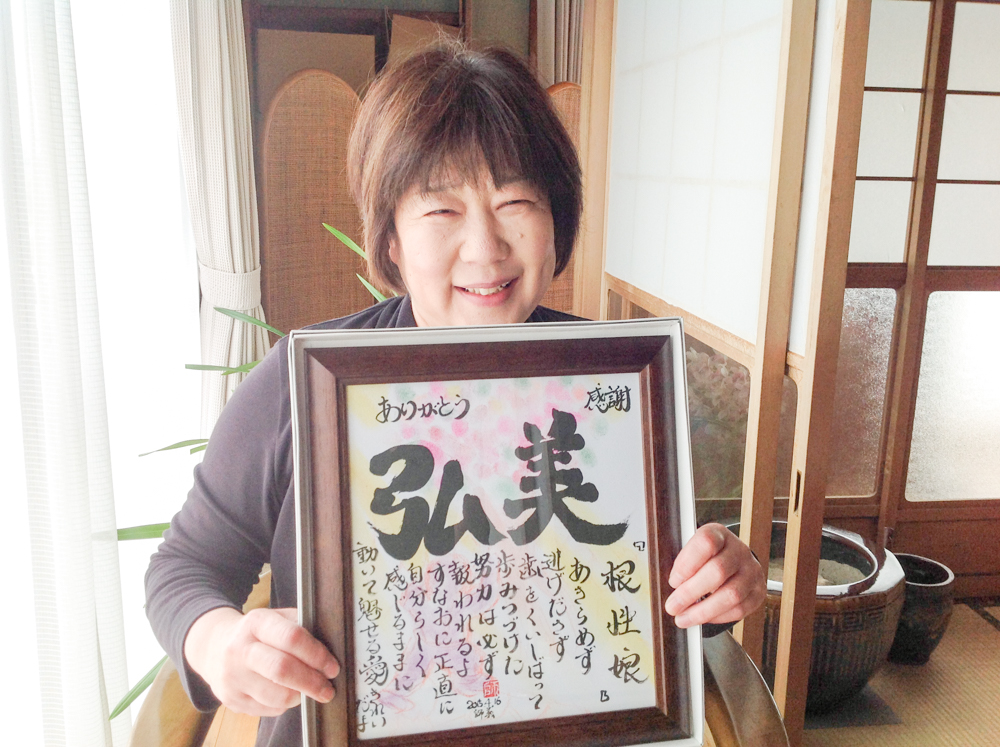 ありがとう
感謝
弘美
『根性娘』
あきらめず
逃げださず
歯をくいしばって
歩みつづけに
努力は必ず
報われるよ
すなおに正直に
自分らしく
感じるままに
動いて魅せる
きれいだよ